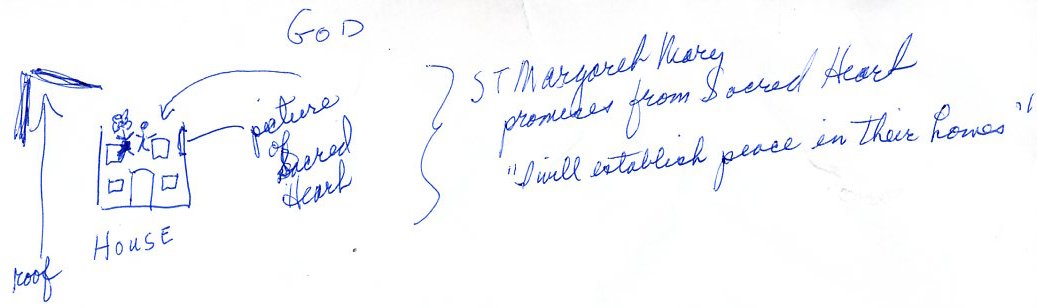 GOD
picture
of
Sacred
Heart
HOUSE
roof
ST Margaret Mary
promises from Sacred Heart
"I will establish peace in their homes"